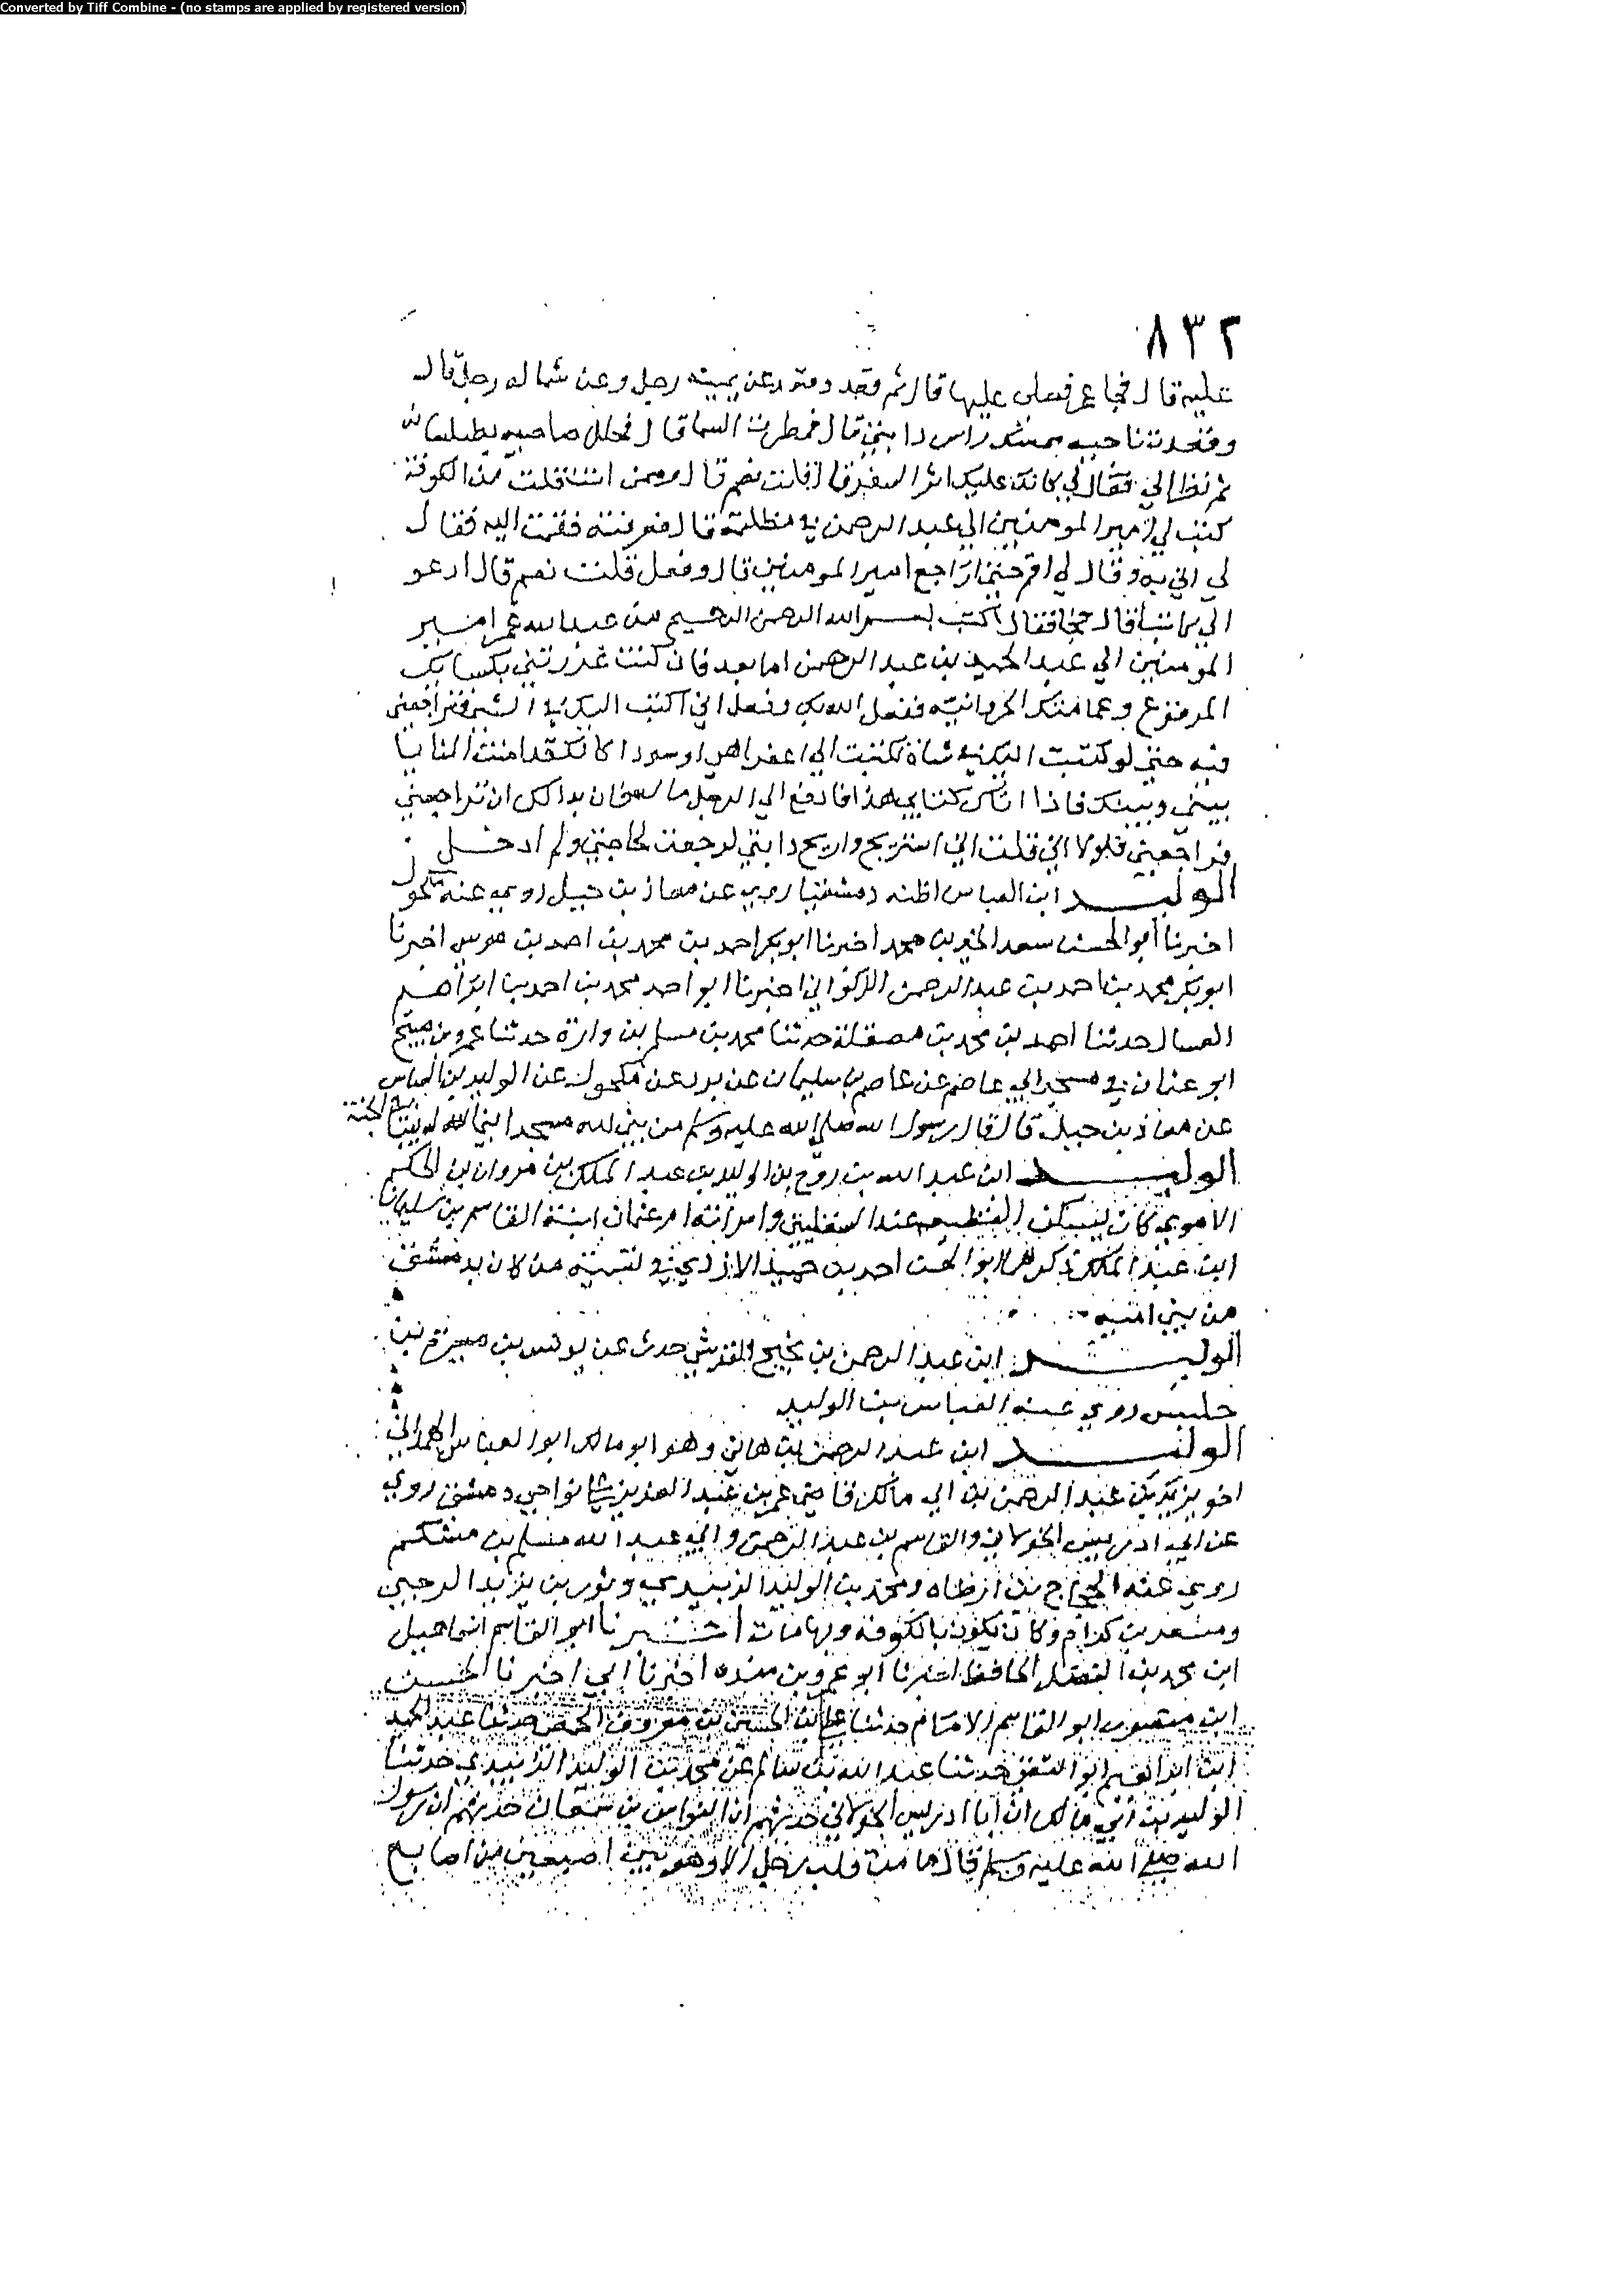 Converted by Tiff Combine - (no stamps are applied by registered version)
٨٣٢
عليه قال فجا عمر فصلى عليها قال ثم قعد وقعد عن يمينه رجل وعن شماله رجل قال
وقعدت ناحيه راس دابتي قال فمطرت السما قال فجلل صاحبيه بطيلسانه
ثم نظر الي فقال لي كانك عليك اثر السفر قال قلت نعم قال وممن انت قلت من الكوفة
كتب لي امير المومنين الي عبد الرحمن في مظلمة قال فعرفته فقمت اليه فقال
لي وقال له راجع امير المومنين قال وفعل قلت نعم قال ادعو
الي قال فجا فقال اكتب بسم الله الرحمن الرحيم من عبد الله عمر امير
المومنين الي عبد الحميد بن عبد الرحمن اما بعد فان كنت غررتني بكسايك
المرفوع وعمامتك ففعل الله بك وفعل اني اكتب اليك في الشي فتراجعني
فيه حتي لو كتبت اليك في شاة لكتبت الي اعفرا هي او سودا كانك قد امنت المنايا
بيني وبينك فاذا اتاك كتابي هذا فادفع الي الرجل ماله فان بدا لك ان تراجعني
فراجعني فلولا اني قلت اني استريح واريح دابتي لرجعت لحاجتي ولم ادخل
الوليد ابن العباس اظنه دمشقيا روي عن معاذ بن جبل روي عنه مكحول
اخبرنا ابو الحسن سعد الخير بن محمد اخبرنا ابو بكر احمد بن محمد بن احمد بن موسي اخبرنا
ابو بكر محمد بن احمد بن عبد الرحمن الذكواني اخبرنا ابو احمد محمد بن احمد بن ابراهيم
العسال حدثنا احمد بن محمد بن مصقلة حدثنا محمد بن مسلم بن وارة حدثنا عمرو بن صبيح
ابو عثمان في مسجد ابي عاصم عن عاصم بن سليمان عن برد عن مكحول عن الوليد بن العباس
عن معاذ بن جبل قال قال رسول الله صلي الله عليه وسلم من بني لله مسجدا بني الله له بيتا في الجنة
الوليد ابن عبد الله بن روح بن الوليد بن عبد الملك بن مروان بن الحكم
الاموي كان يسكن عند السفليين وامراته ام عثمان ابنة القاسم بن سليمان
ابن عبد الملك ذكره ابو الحسن احمد بن حميد الازدي في تسمية من كان بدمشق
من بني امية
الوليد ابن عبد الرحمن بن نجيح القرشي حدث عن يونس بن ميسرة بن
حلبس روي عنه العباس بن الوليد
الوليد ابن عبد الرحمن بن هاني وهو ابو مالك ابو العباس الهمداني
اخو يزيد بن عبد الرحمن بن ابي مالك قاضي عمر بن عبد العزيز نواحي دمشق روي
عن ابي ادريس الخولاني والقاسم بن عبد الرحمن وابي عبيد الله مسلم بن مشكم
روي عنه الحجاج بن ارطاه ومحمد بن الوليد الزبيدي وثور بن يزيد الرحبي
ومسعر بن كدام وكان يكون بالكوفة وبها مات اخبرنا ابو القاسم اسماعيل
ابن محمد بن الفضل الحافظ اخبرنا ابو عمرو بن منده اخبرنا ابي اخبرنا الحسن
ابن منصور ابو القاسم الامام حدثنا علي بن الحسين بن معروف الحمصي حدثنا عبد الحميد
ابن ابراهيم ابو التقي حدثنا عبد الله بن سالم عن محمد بن الوليد الزبيدي حدثنا
الوليد بن ابي مالك ان ابا ادريس الخولاني حدثهم ان النواس بن سمعان حدثهم ان رسول
الله صلي الله عليه وسلم قال ما من قلب رجل الا وهو بين اصبعين من اصابع